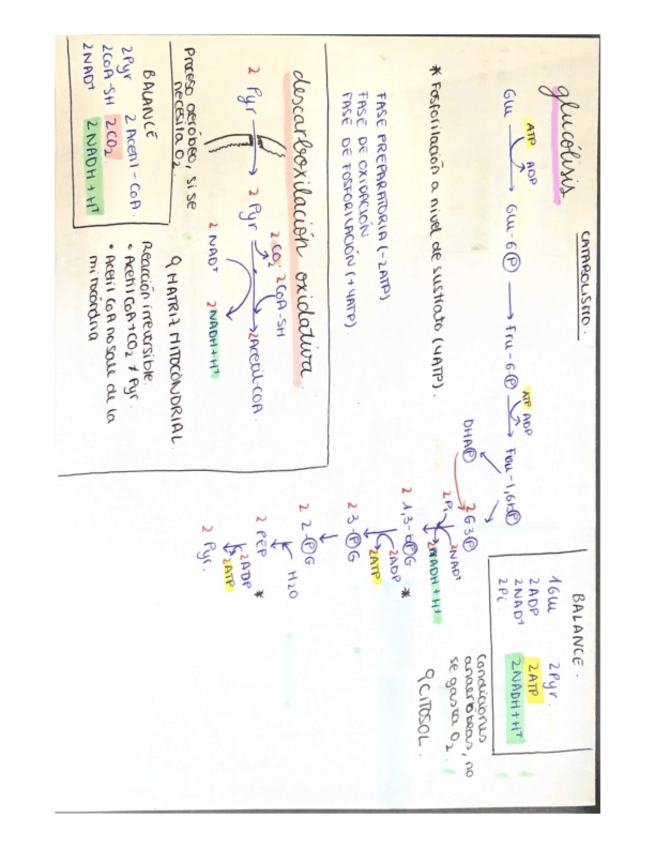 CATABOLISMO.
glucólisis
Glu → Glu-6(P) → Fru-6(P) → Fru-1,6b(P)
ATP ADP
ATP ADP
DHA(P)
2 G3(P)
2Pi 2NAD⁺
2NADH+H⁺
2 1,3-b(P)G
2ADP *
2ATP
2 3-(P)G
2 2-(P)G
H2O
2 PEP
2ADP *
2ATP
2 Pyr.
* Fosforilación a nivel de sustrato (4ATP).
FASE PREPARATORIA (-2ATP)
FASE DE OXIDACIÓN
FASE DE FOSFORILACIÓN (+4ATP).
BALANCE.
1Glu 2Pyr.
2ADP 2ATP
2NAD⁺ 2NADH+H⁺
2Pi.
Condiciones
anaeróbeas, no
se gasta O2.
CITOSOL.
descarboxilación oxidativa.
2 Pyr → 2 Pyr → 2Acetil-CoA.
2 CO2 2CoA-SH
2 NAD⁺ 2NADH+H⁺
Proceso aeróbeo, si se
necesita O2
MATRIZ MITOCONDRIAL.
Reacción irreversible.
• Acetil CoA+CO2 ≠ Pyr.
• Acetil CoA no sale de la
mitocondria
BALANCE
2Pyr 2 Acetil-CoA.
2CoA-SH 2CO2.
2NAD⁺ 2NADH+H⁺